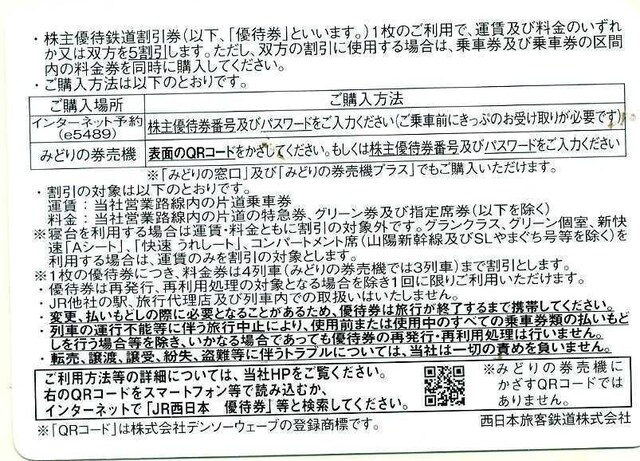 ・株主優待鉄道割引券(以下、「優待券」といいます。)1枚のご利用で、運賃及び料金のいずれ
か又は双方を5割引します。ただし、双方の割引に使用する場合は、乗車券及び乗車券の区間
内の料金券を同時に購入してください。
・ご購入方法は以下のとおりです。
ご購入場所 ご購入方法
インターネット予約 (e5489) 株主優待券番号及びパスワードをご入力ください(ご乗車前にきっぷのお受け取りが必要です)
みどりの券売機 表面のQRコードをかざしてください。もしくは株主優待券番号及びパスワードをご入力ください
※「みどりの窓口」及び「みどりの券売機プラス」でもご購入いただけます。
・割引の対象は以下のとおりです。
運賃:当社営業路線内の片道乗車券
料金:当社営業路線内の片道の特急券、グリーン券及び指定席券(以下を除く)
※寝台を利用する場合は運賃・料金ともに割引の対象外です。グランクラス、グリーン個室、新快
速「Aシート」、「快速 うれしート」、コンパートメント席(山陽新幹線及びSLやまぐち号等を除く)を
利用する場合は、運賃のみを割引の対象とします。
※1枚の優待券につき、料金券は4列車(みどりの券売機では3列車)まで割引とします。
・優待券は再発行、再利用処理の対象となる場合を除き1回に限りご利用いただけます。
・JR他社の駅、旅行代理店及び列車内での取扱いはいたしません。
・変更、払いもどしの際に必要となることがあるため、優待券は旅行が終了するまで携帯してください。
・列車の運行不能等に伴う旅行中止により、使用前または使用中のすべての乗車券類の払いもど
しを行う場合等を除き、いかなる場合であっても優待券の再発行・再利用処理は行いません。
・転売、譲渡、譲受、紛失、盗難等に伴うトラブルについては、当社は一切の責めを負いません。
ご利用方法等の詳細については、当社HPをご覧ください。
右のQRコードをスマートフォン等で読み込むか、
インターネットで「JR西日本 優待券」等と検索してください。
※みどりの券売機に
かざすQRコードでは
ありません。
※「QRコード」は株式会社デンソーウェーブの登録商標です。
西日本旅客鉄道株式会社